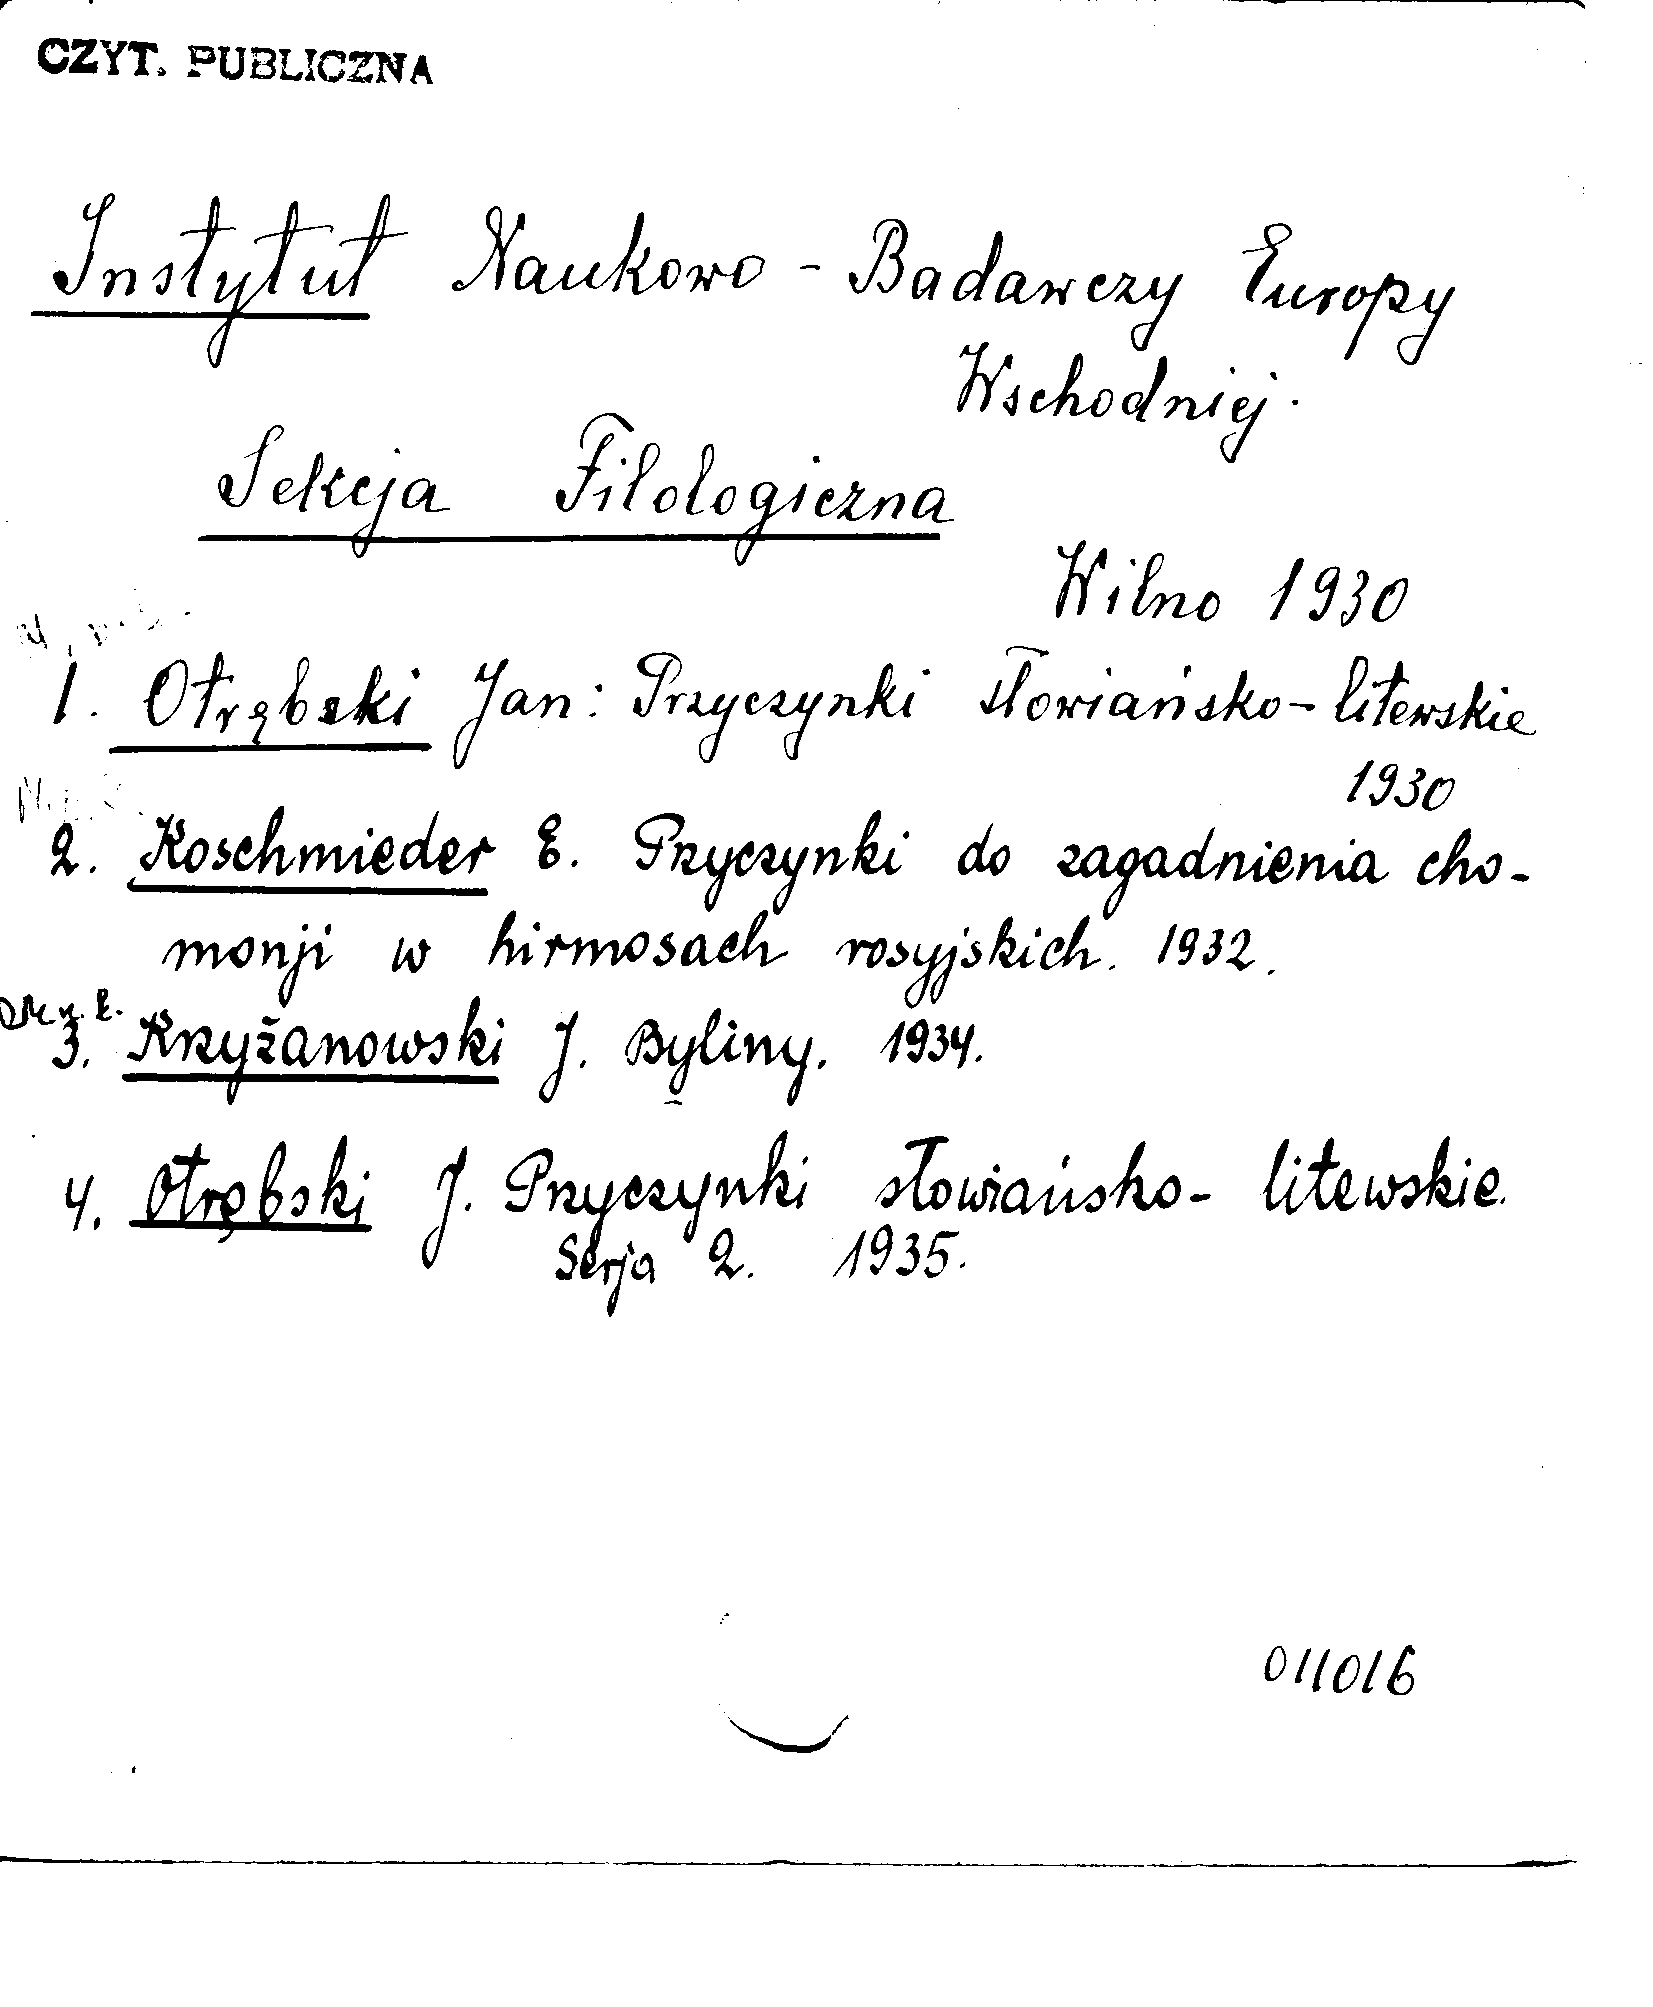 CZYT. PUBLICZNA
Instytut Naukowo - Badawczy Europy
Wschodniej.
Sekcja Filologiczna
Wilno 1930
1. Otrębski Jan: Przyczynki słowiańsko-litewskie
1930
2. Koschmieder E. Przyczynki do zagadnienia cho-
monji w hirmosach rosyjskich. 1932.
3. Krzyżanowski J. Byliny. 1934.
4. Otrębski J. Przyczynki słowiańsko- litewskie.
Serja 2. 1935.
011016